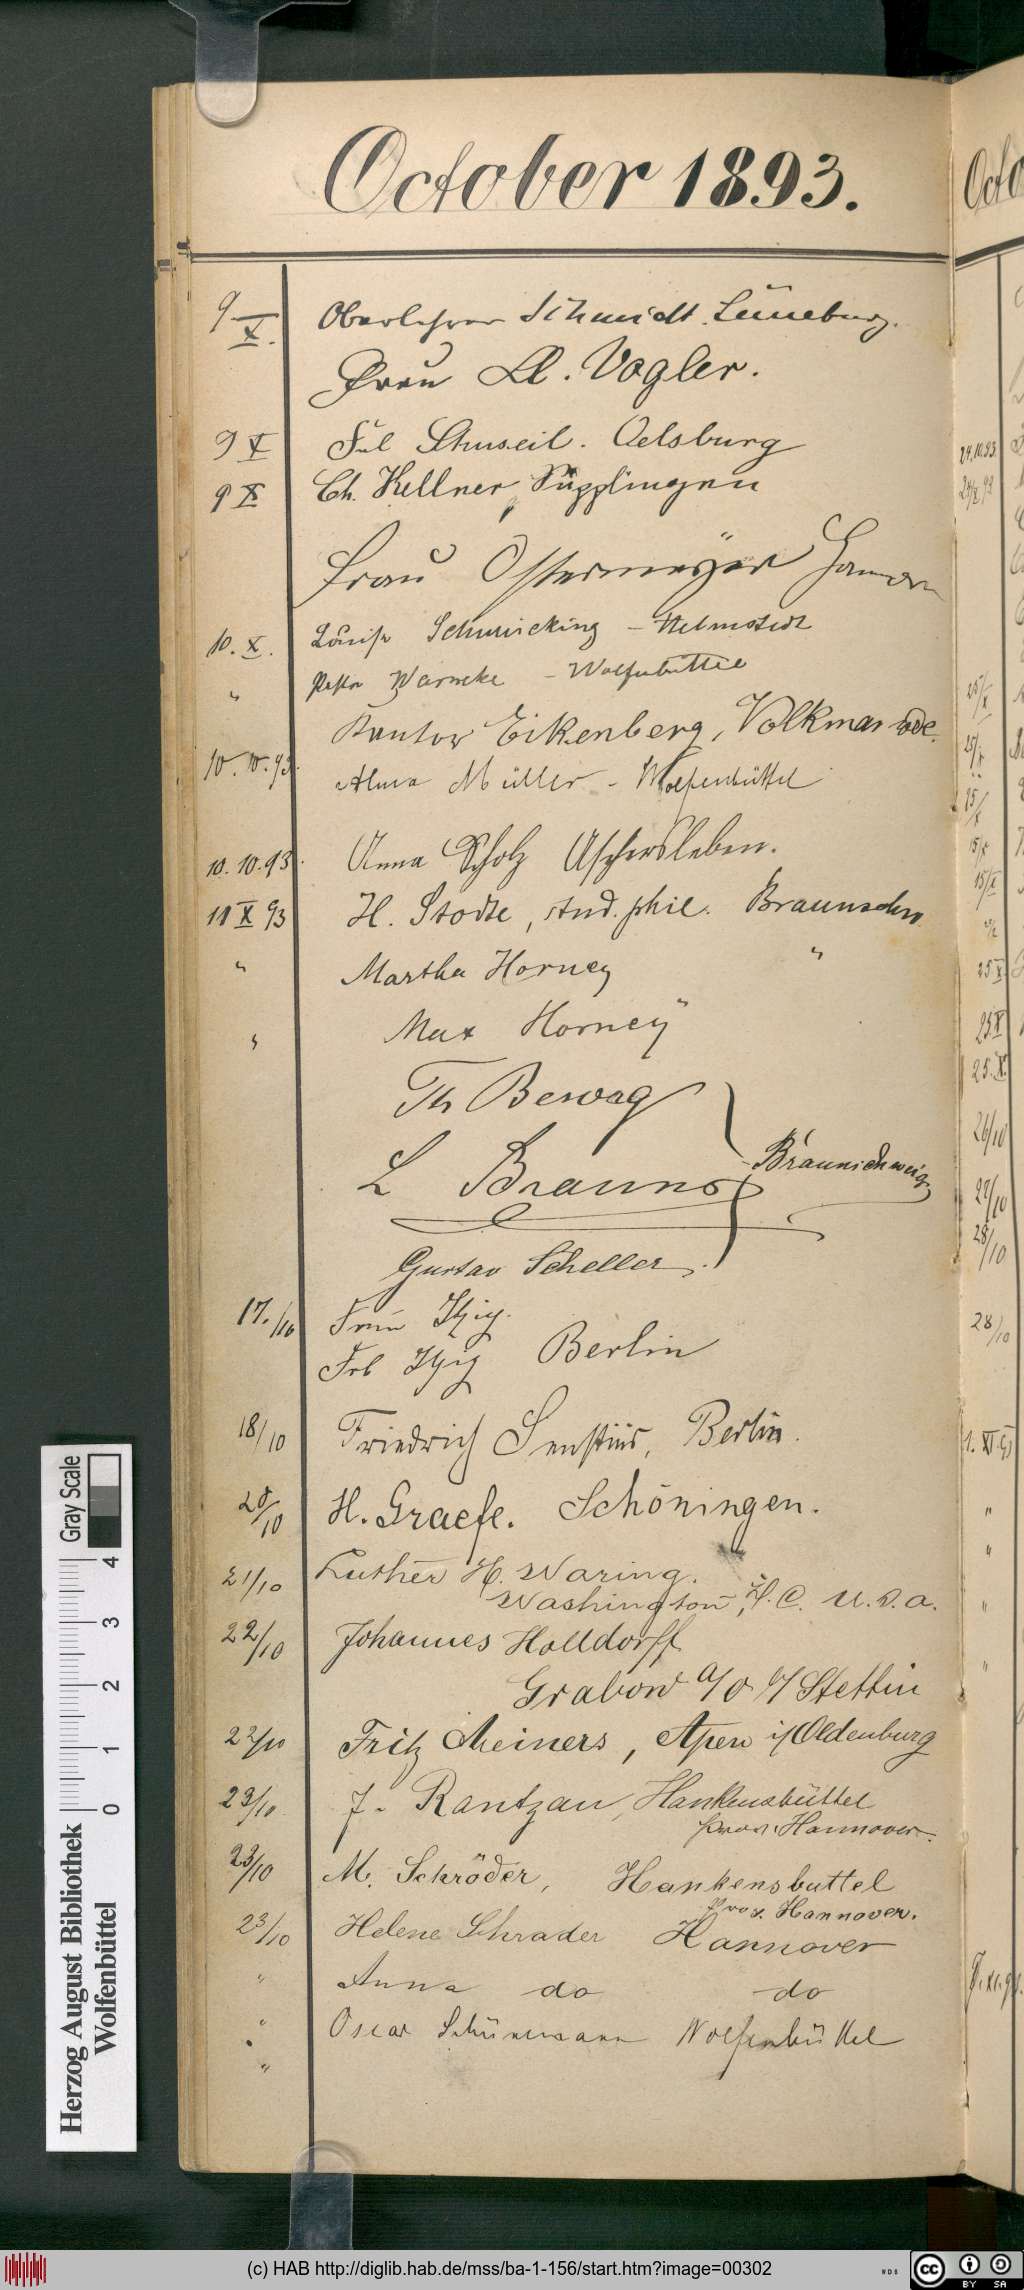 October 1893.
9/X. Oberlehrer Schmidt. Lüneburg.
Frau A. Vogler.
9 X Frl . Oelsburg
9 X Ch. Kellner, Süpplingen
Frau Ostermeyer
10. X. Louise Schmicking – Helmstedt
" Pastor Warneke – Wolfenbüttel
Kantor Eikenberg, Volkmarode.
10. 10. 93. Alma Müller – Wolfenbüttel
10. 10. 93. Anna Scholz Aschersleben.
11 X 93 H. Stodte, stud. phil. Braunschw.
" Martha Horney "
" Max Horney "
Th Bewag
L Brauns
Braunschweig
Gustav Scheller.
17./10 Frau Itzig.
Frl Itzig Berlin
18/10 Friedrich Senstius, Berlin.
20/10 H. Graefe. Schöningen.
21/10 Luther H. Waring.
Washington, D. C. U. S. A.
22/10 Johannes Holldorff
Grabow a/O b/ Stettin
22/10 Fritz Meiners, Apen i/ Oldenburg
23/10. J. Rantzau, Hankensbüttel
Prov. Hannover.
23/10 M. Schröder, Hankensbuttel
Prov. Hannover.
23/10 Helene Schrader Hannover
" Anna do do
" Oscar Schünemann Wolfenbüttel
"
Octo
24.10.93.
25/X
25 X
25 X
25. X.
26/10
27/10
28/10
28/10
1. XI 93
"
"
"
"
Gray Scale
4
3
2
1
0
Herzog August Bibliothek
Wolfenbüttel
(c) HAB http://diglib.hab.de/mss/ba-1-156/start.htm?image=00302
WDB
cc
BY SA